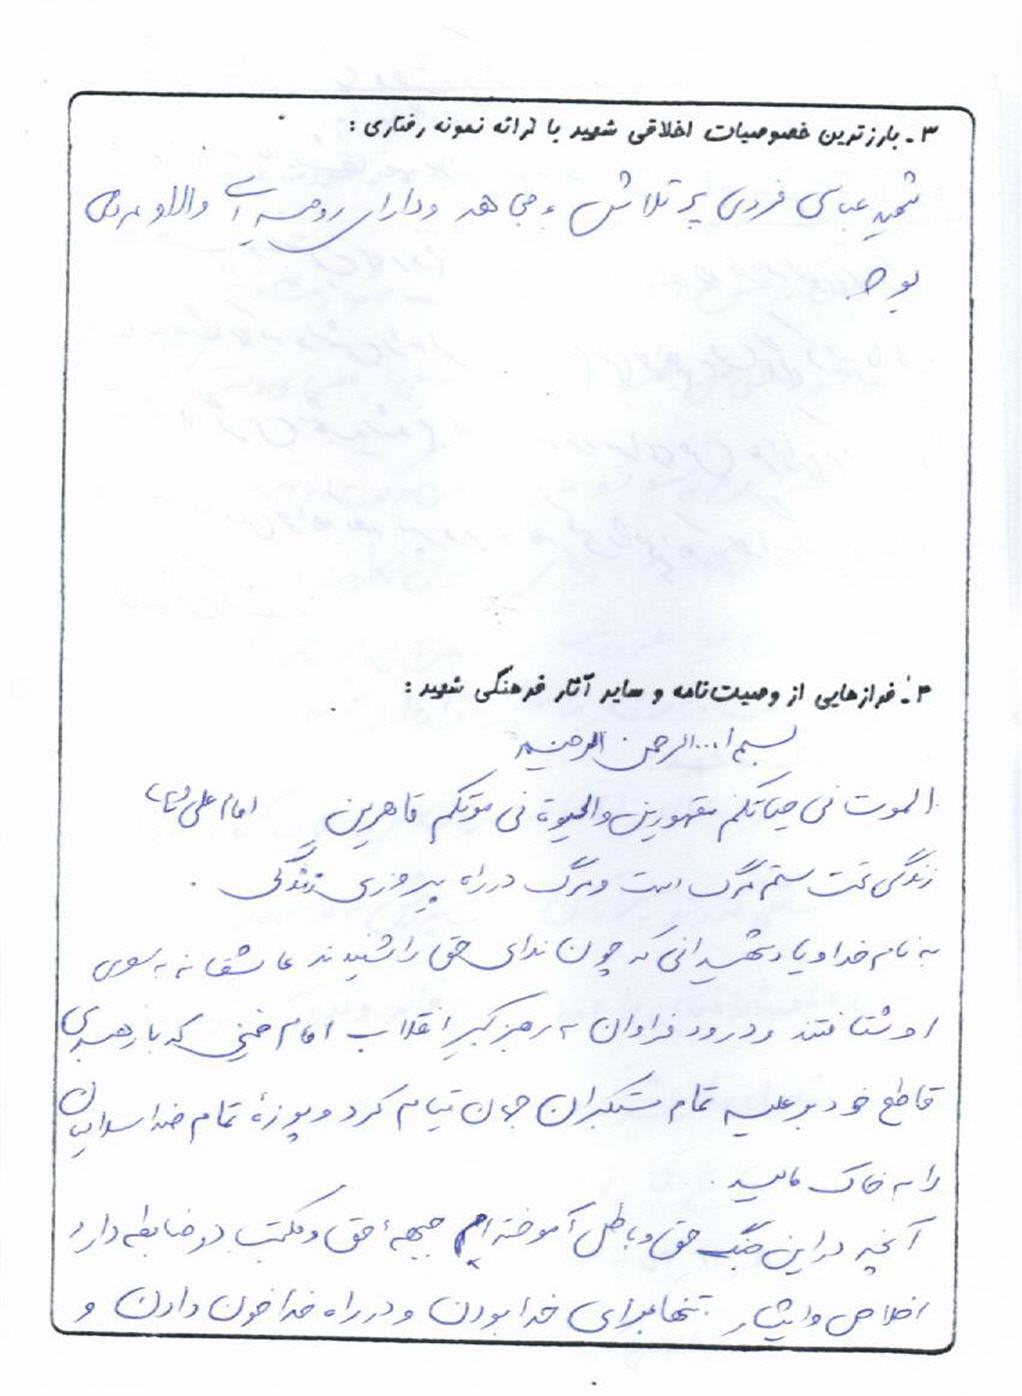 ۳ ـ بارزترین خصوصیات اخلاقی شهید با ارائه نمونه رفتاری :
شهید عباسی فردی پر تلاش و مجاهد و دارای روحیه ای والا و مردمی
بود
۴ ـ فرازهایی از وصیت‌نامه و سایر آثار فرهنگی شهید :
بسم ا... الرحمن الرحیم
الموت فی حیاتکم مقهورین والحیوة فی موتکم قاهرین امام علی
زندگی تحت ستم مرگ است و مرگ در راه پیروزی زندگی .
به نام خدا و یاد شهیدانی که چون ندای حق را شنیدند عاشقانه به سوی
او شتافتند و درود فراوان به رهبر کبیر انقلاب امام خمینی که با رهبری
قاطع خود بر علیه تمام مستکبران جهان قیام کرد و پوزهٔ تمام ابرقدرتان
را به خاک مالید .
آنچه در این جنگ حق و باطل آموخته ایم جبههٔ حق و مکتب دو ضابطه دارد
اخلاص و ایثار تنها برای خدا بودن و در راه خدا خون دادن و